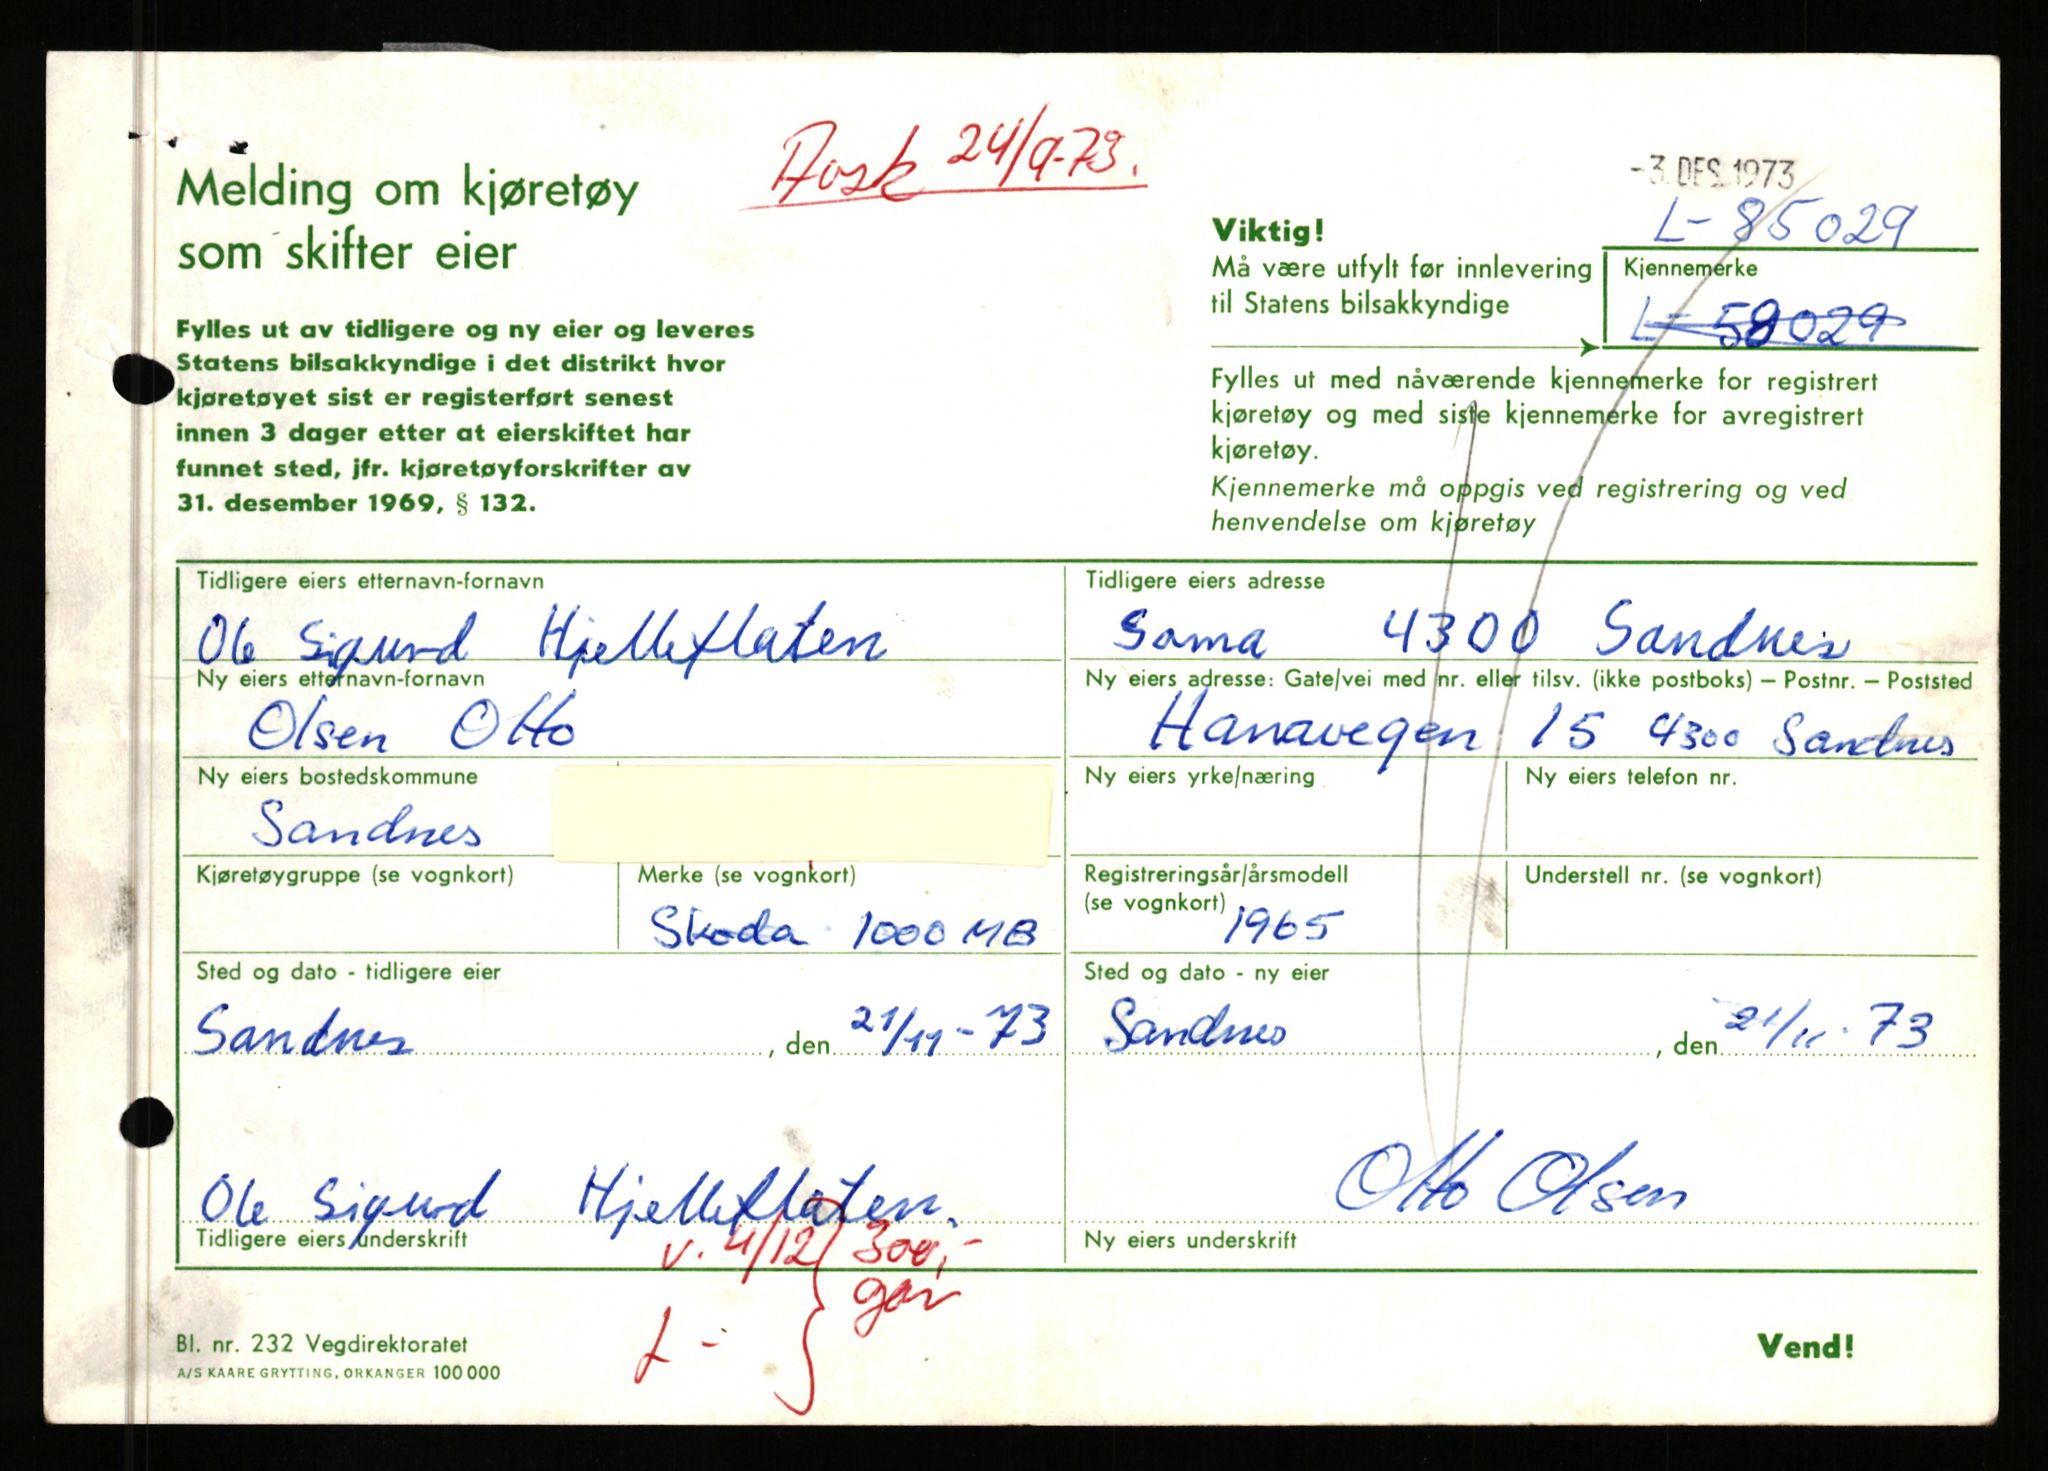 Avsk 24/9-73.
-3. DES. 1973
L- 85029
Melding om kjøretøy
som skifter eier
Viktig!
Må være utfylt før innlevering
til Statens bilsakkyndige
Kjennemerke
L- 58029
Fylles ut av tidligere og ny eier og leveres
Statens bilsakkyndige i det distrikt hvor
kjøretøyet sist er registerført senest
innen 3 dager etter at eierskiftet har
funnet sted, jfr. kjøretøyforskrifter av
31. desember 1969, § 132.
Fylles ut med nåværende kjennemerke for registrert
kjøretøy og med siste kjennemerke for avregistrert
kjøretøy.
Kjennemerke må oppgis ved registrering og ved
henvendelse om kjøretøy
Tidligere eiers etternavn-fornavn
Ole Sigurd Hjelleflaten
Tidligere eiers adresse
Soma 4300 Sandnes
Ny eiers etternavn-fornavn
Olsen Otto
Ny eiers adresse: Gate/vei med nr. eller tilsv. (ikke postboks) – Postnr. – Poststed
Hanavegen 15 4300 Sandnes
Ny eiers bostedskommune
Sandnes
Ny eiers yrke/næring
Ny eiers telefon nr.
Kjøretøygruppe (se vognkort)
Merke (se vognkort)
Skoda 1000 MB
Registreringsår/årsmodell
(se vognkort) 1965
Understell nr. (se vognkort)
Sted og dato - tidligere eier
Sandnes, den 21/11-73
Sted og dato - ny eier
Sandnes, den 21/11-73
Ole Sigurd Hjelleflaten.
Tidligere eiers underskrift
Otto Olsen
Ny eiers underskrift
v. 4/12 } 300,-
L -
Bl. nr. 232 Vegdirektoratet
A/S KAARE GRYTTING, ORKANGER 100 000
Vend!